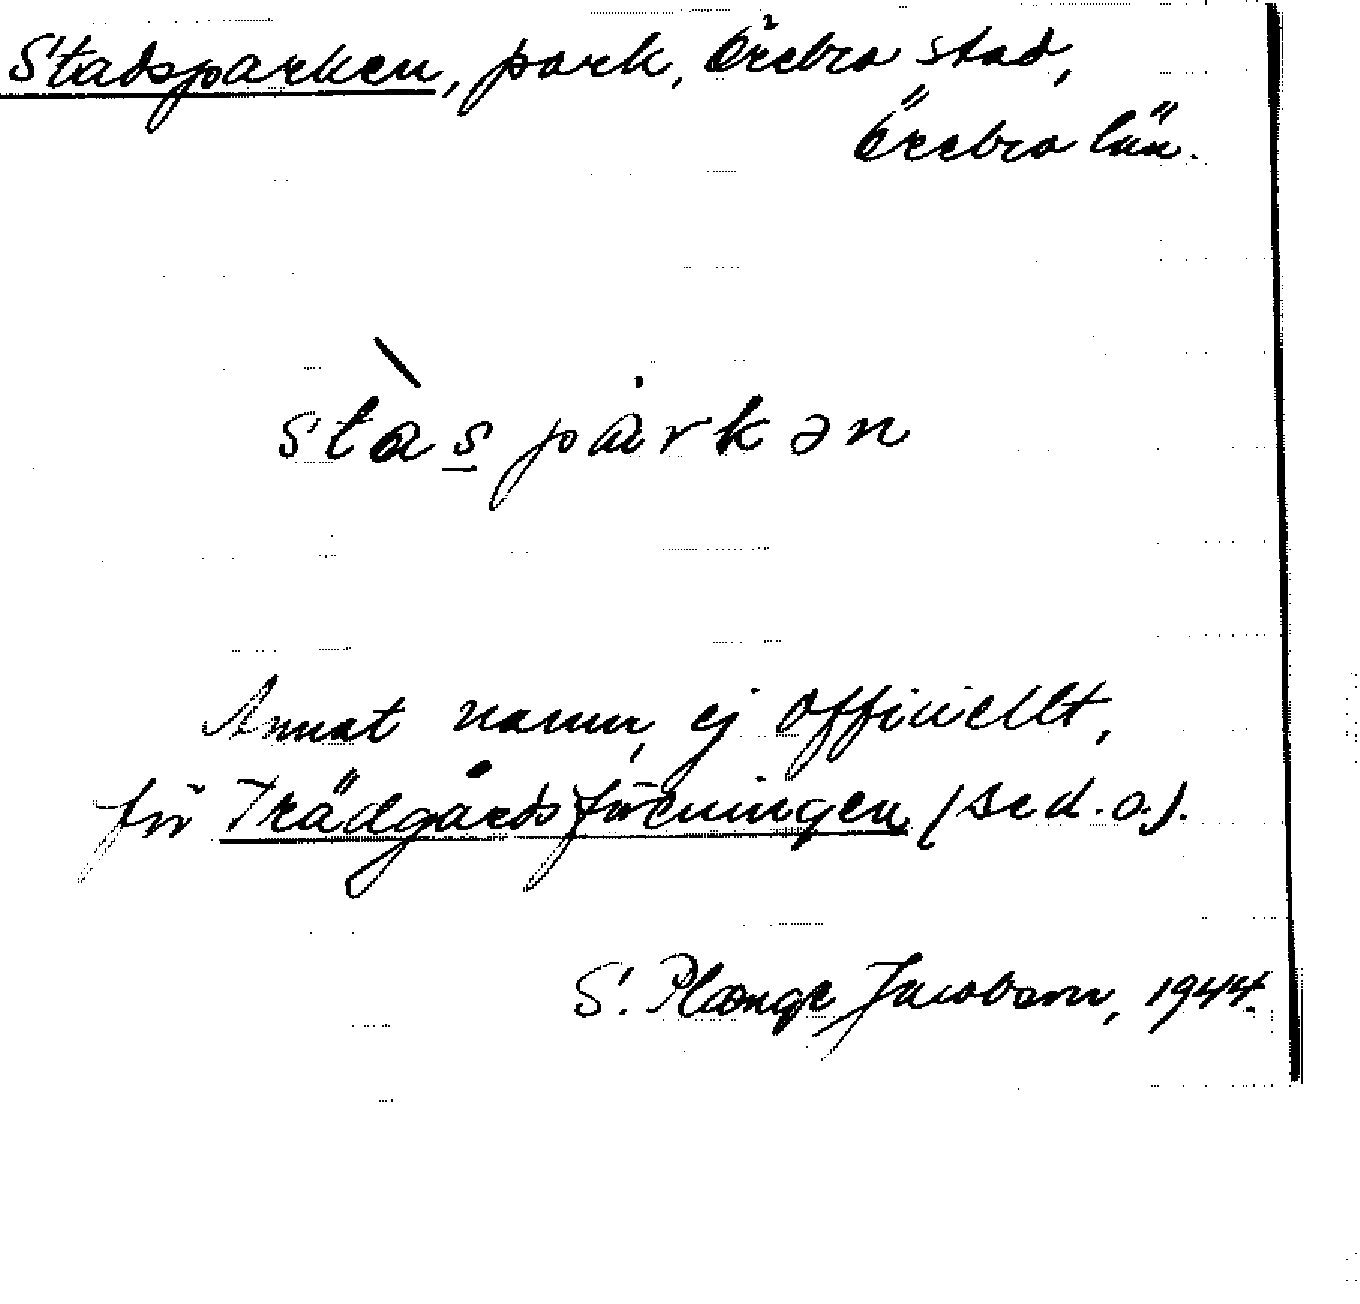 Stadsparken, park, Örebro stad,
Örebro län.
stàs̲pȧrkən
Annat namn, ej officiellt,
för Trädgårdsföreningen (se d. o.).
S. Plænge Jacobson, 1944.